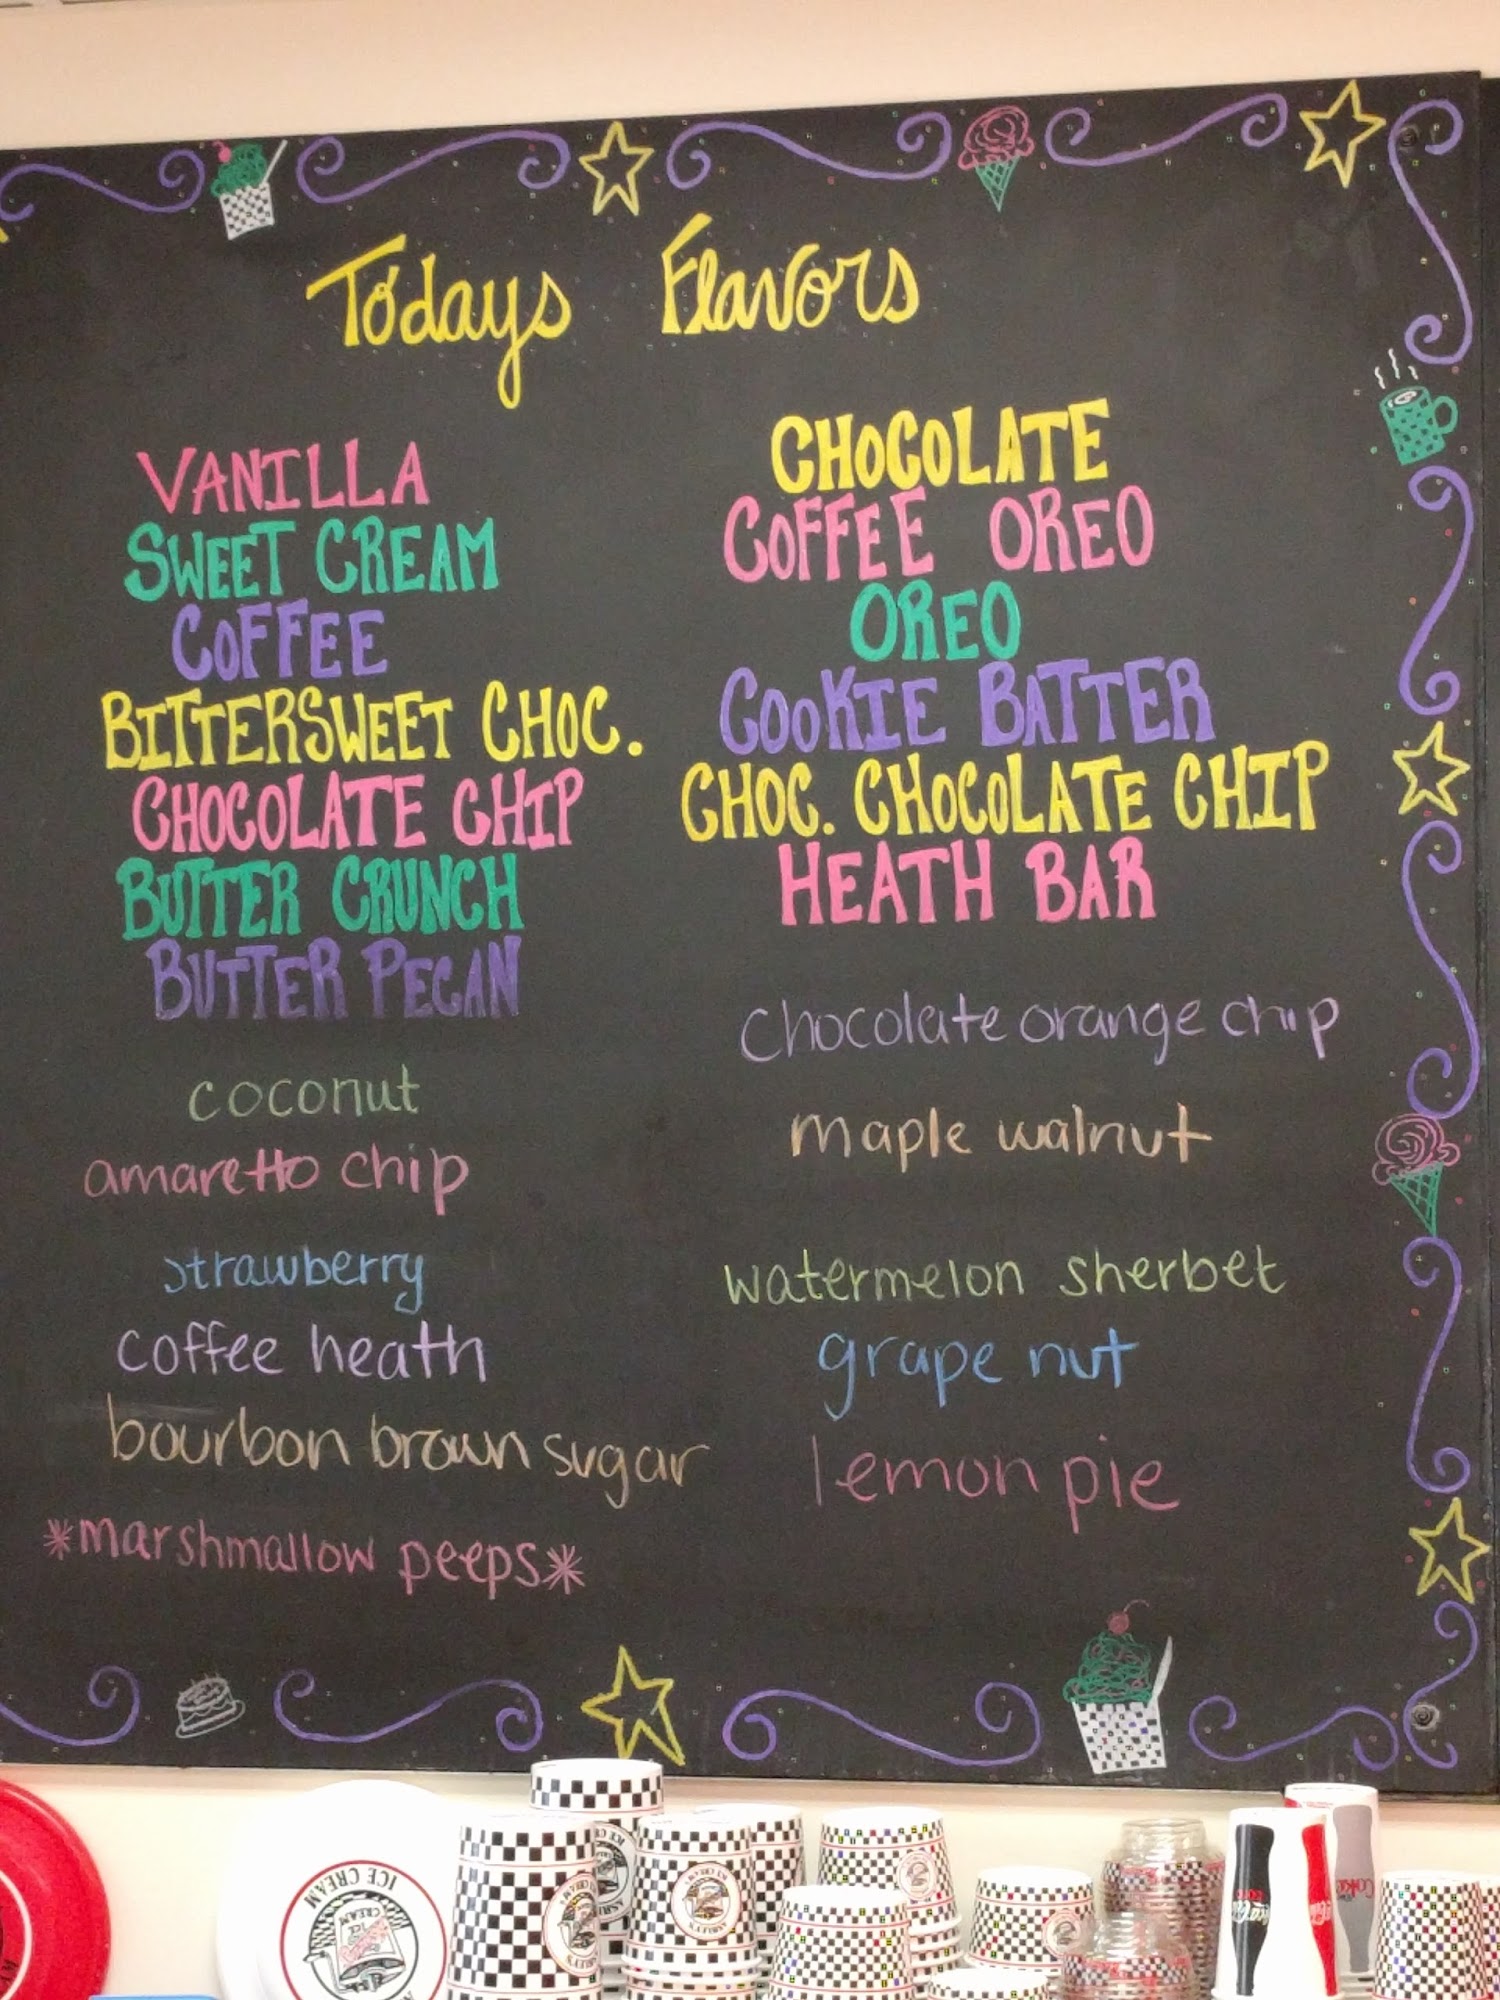 Todays Flavors
VANILLA
SWEET CREAM
COFFEE
BITTERSWEET CHOC.
CHOCOLATE CHIP
BUTTER CRUNCH
BUTTER PECAN
coconut
amaretto chip
strawberry
coffee heath
bourbon brown sugar
*marshmallow peeps*
CHOCOLATE
COFFEE OREO
OREO
COOKIE BATTER
CHOC. CHOCOLATE CHIP
HEATH BAR
chocolate orange chip
maple walnut
watermelon sherbet
grape nut
lemon pie
ICE CREAM